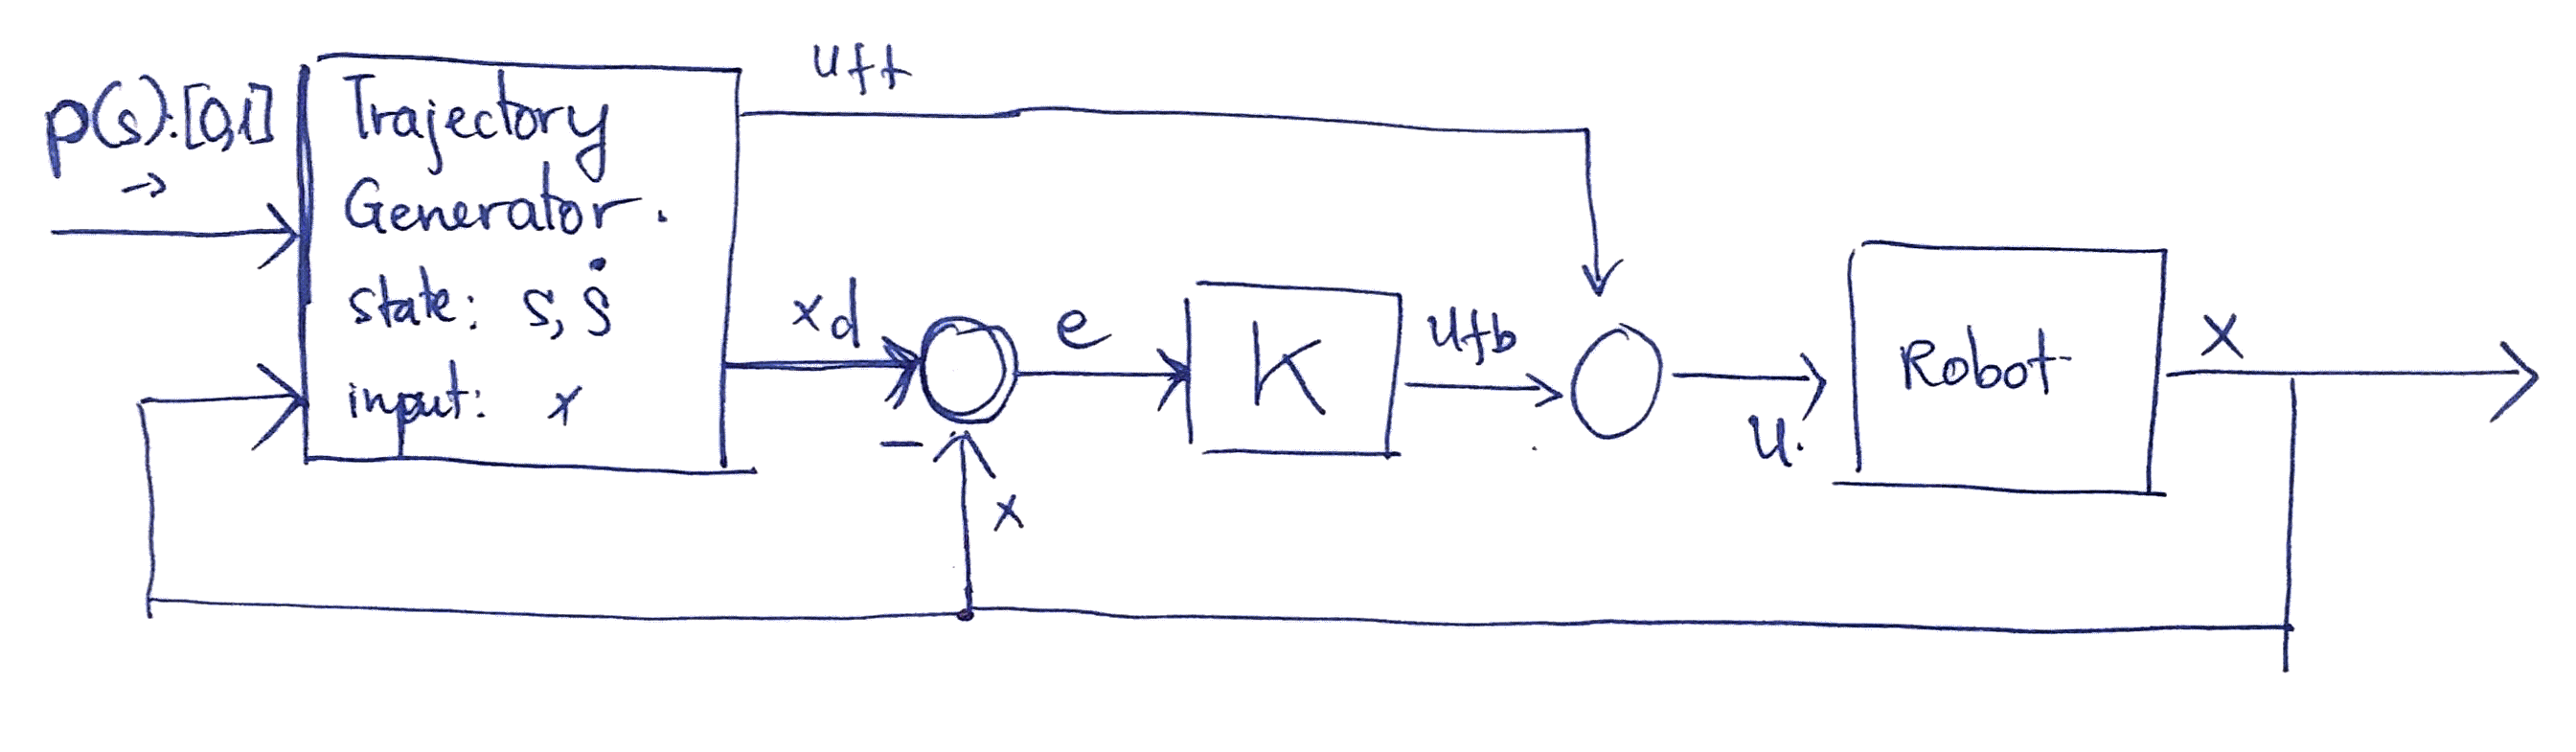 p(s):[0,1]
→
Trajectory
Generator.
state: s, ṡ
input: x
uff
xd
e
K
ufb
u.
Robot
x
−
x